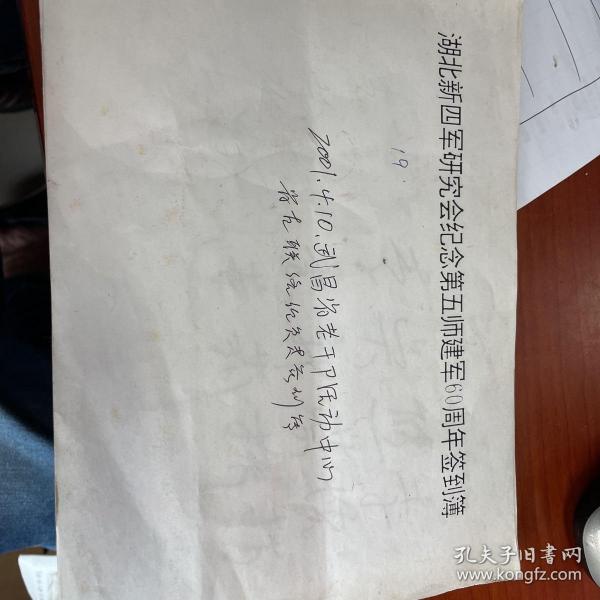 湖北新四军研究会纪念第五师建军60周年签到簿
19
2001.4.10.武昌省老干卩活动中心
孔夫子旧书网
www.kongfz.com